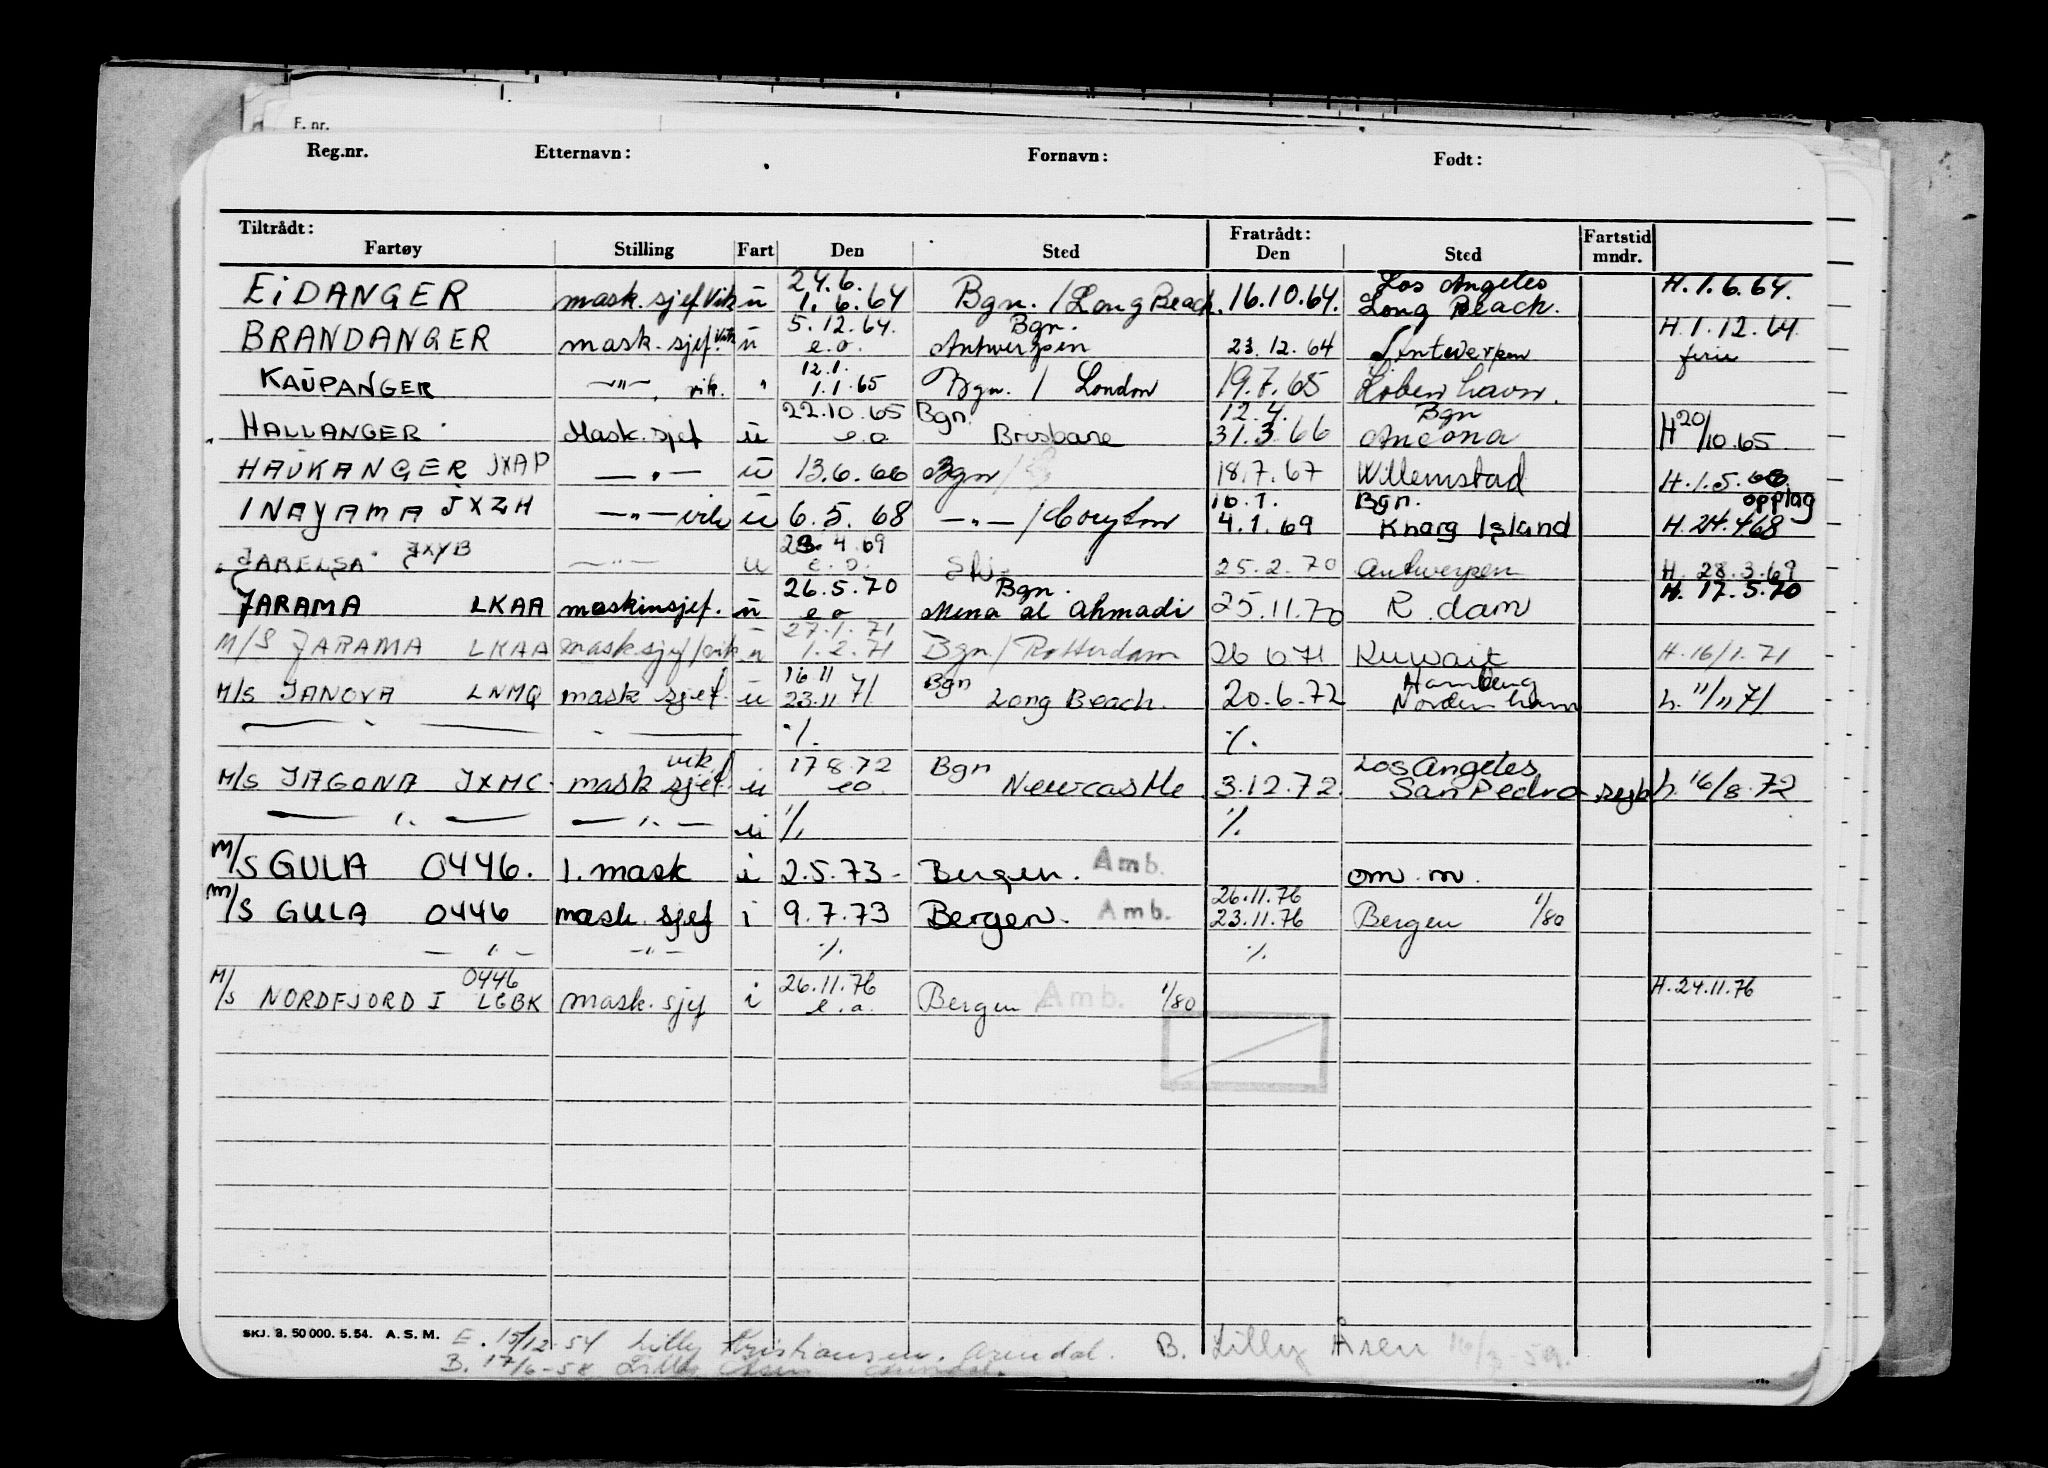 F. nr.
Reg.nr. Etternavn: Fornavn: Født:
Tiltrådt: Fratrådt: Fartstid
Fartøy Stilling Fart Den Sted Den Sted mndr.
24.6. Los Angeles H.1.6.64.
EiDANGER mask.sjef Vik u 1.6.64 Bgn. / Long Beach. 16.10.64. Long Beach.
5.12.64. Bgn. H.1.12.64
BRANDANGER mask.sjef. Vik u e.o. Antwerpen 23.12.64 Antwerpen ferie
12.1.
KAUPANGER —"— vik. " 1.1.65 Bgn. / London 19.7.65 Köbenhavn.
22.10.65 Bgn. 12.4. Bgn
HALLANGER Mask.sjef u e.o Brisbane 31.3.66 Ancona H 20/10.65
HAUKANGER JXAP —"— u 13.6.66 Bgn / 18.7.67 Willemstad H.1.5.68
16.1. Bgn. opplag
INAYAMA JXZH —"— vik u 6.5.68 —"— / Coryton 4.1.69 Kharg Island H.24.4.68
23.4.69
JARELSA JXYB —"— u e.o. 25.2.70 Antwerpen H. 28.3.69
26.5.70 Bgn. H. 17.5.70
JARAMA LKAA maskinsjef. u e o Mena al Ahmadi 25.11.70 R.dam
27.1.71
M/S JARAMA LKAA mask.sjef/vik u 1.2.71 Bgn / Rotterdam 26 6 71 Kuwait H.16/1.71
16 11 Bgn Hamburg
M/S JANOVA LNMQ mask sjef. u 23.11 71 Long Beach. 20.6.72 Nordenham h. 11/11 71
— " — ./. ./.
vik 17 8.72 Bgn Los Angeles
M/S JAGONA JXMC. mask sjef. u eo. Newcastle 3.12.72. San Pedro h. 16/8.72
— ". — — ". — u ./. ./.
M/S GULA 0446. 1. mask i 2.5.73- Bergen. Amb. om. m.
26.11.76
M/S GULA 0446 mask. sjef i 9.7.73 Bergen. Amb. 23.11.76 Bergen 1/80
— " — —"— ./. ./.
0446 26.11.76 H.24.11.76
M/S NORDFJORD I LGBK mask. sjef i e.o. Bergen Amb. 1/80
SKJ. 3. 50 000. 5.54. A.S.M. E. 15/12-54 Lilly Kristiansen. Arendal. B. Lilly Åsen 16/3-59.
B. 17/6-58 Lilly Åsen Arendal.